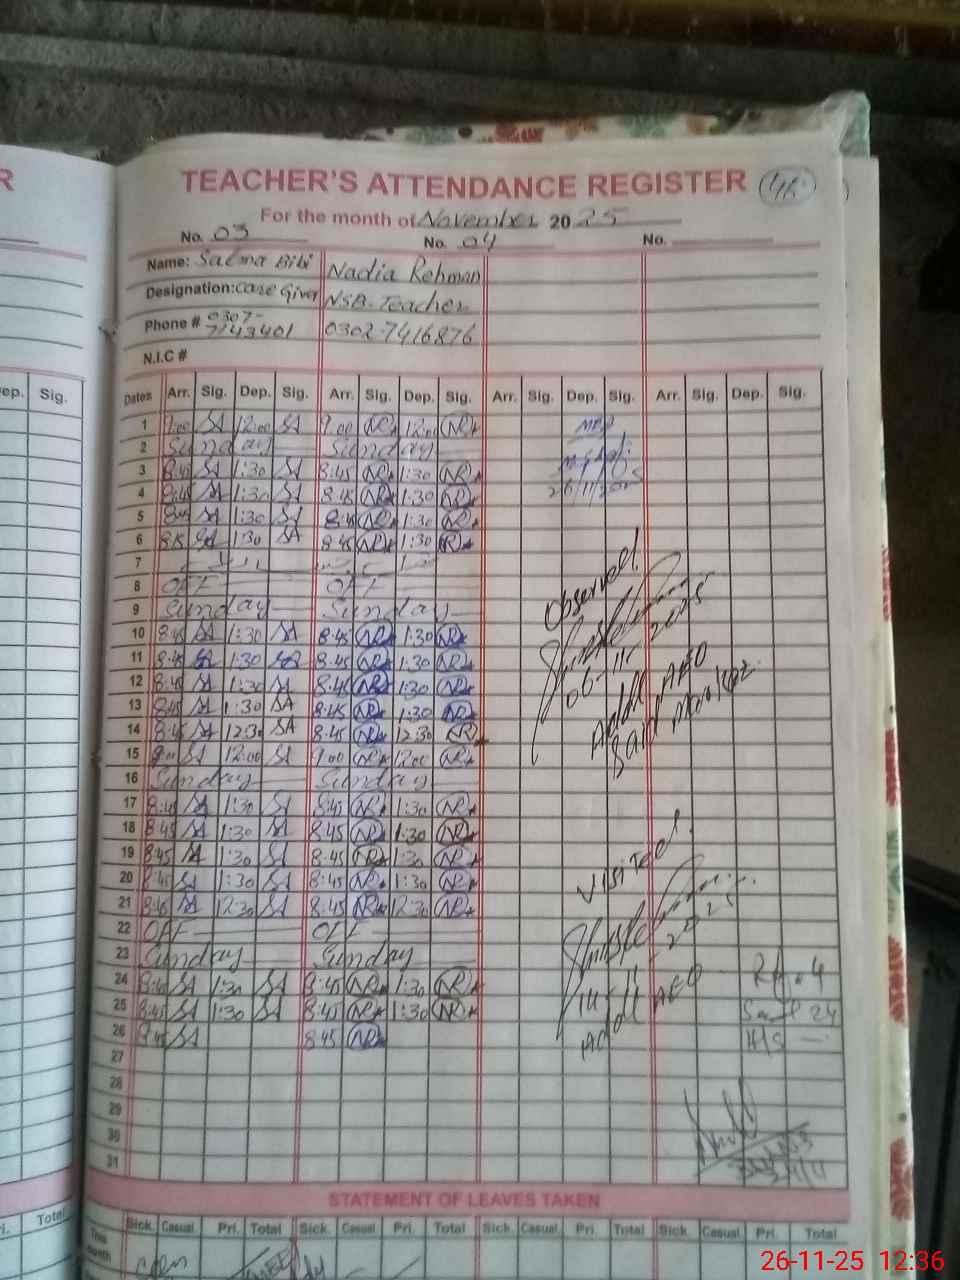 TEACHER'S ATTENDANCE REGISTER
For the month of November 2025
No. 03 No. 04 No.
Name: Salma Bibi Nadia Rehman
Designation: Care Giver NSB-Teacher
Phone # 0307-7143401 0302-7416876
N.I.C #
Dates Arr. Sig. Dep. Sig. Arr. Sig. Dep. Sig. Arr. Sig. Dep. Sig. Arr. Sig. Dep. Sig.
1 9:00 SA 12:00 SA 9:00 NR 12:00 NR
2 Sunday Sunday
3 8:45 SA 1:30 SA 8:45 NR 1:30 NR
4 8:45 SA 1:30 SA 8:45 NR 1:30 NR
5 8:45 SA 1:30 SA 8:45 NR 1:30 NR
6 SA 1:30 SA 8:45 NR 1:30 NR
7
8 OFF OFF
9 Sunday Sunday
10 8:45 SA 1:30 SA 8:45 NR 1:30 NR
11 8:45 SA 1:30 SA 8:45 NR 1:30 NR
12 8:45 SA 1:30 SA 8:45 NR 1:30 NR
13 8:45 SA 1:30 SA 8:45 NR 1:30 NR
14 8:45 SA 12:30 SA 8:45 NR 12:30 NR
15 9:00 SA 12:00 SA 9:00 NR 12:00 NR
16 Sunday Sunday
17 8:45 SA 1:30 SA 8:45 NR 1:30 NR
18 8:45 SA 1:30 SA 8:45 NR 1:30 NR
19 8:45 SA 1:30 SA 8:45 NR 1:30 NR
20 8:45 SA 1:30 SA 8:45 NR 1:30 NR
21 SA 12:30 SA 8:45 NR 12:30 NR
22 OFF OFF
23 Sunday Sunday
24 SA 1:30 SA 8:45 NR 1:30 NR
25 8:45 SA 1:30 SA 8:45 NR 1:30 NR
26 8:45 SA 8:45 NR
27
28
29
30
31
26/11/2025
Observed
06-11-2025
Addl AEO
Visited
14-11-2025
Addl AEO
STATEMENT OF LEAVES TAKEN
Sick. Casual Pri. Total Sick. Casual Pri. Total Sick. Casual Pri. Total Sick. Casual Pri. Total
This month
ep. Sig.
i. Total
R
26-11-25 12:36